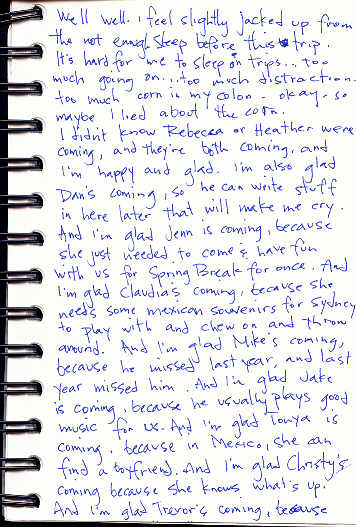 Well well. I feel slightly jacked up from
the not enough sleep before this trip.
It's hard for me to sleep on trips... too
much going on... too much distraction.
too much corn in my colon - okay. so
maybe I lied about the corn.
I didn't know Rebecca or Heather were
coming, and they're both coming, and
I'm happy and glad. I'm also glad
Dan's coming, so he can write stuff
in here later that will make me cry.
And I'm glad Jenn is coming, because
she just needed to come & have fun
with us for Spring Break for once. And
I'm glad Claudia's coming, because she
needs some mexican souvenirs for Sydney
to play with and chew on and throw
around. And I'm glad Mike's coming,
because he missed last year, and last
year missed him. And I'm glad Jake
is coming, because he usually plays good
music for us. And I'm glad Tonya is
coming, because in Mexico, she can
find a boyfriend. And I'm glad Christy's
coming because she knows what's up.
And I'm glad Trevor's coming, because